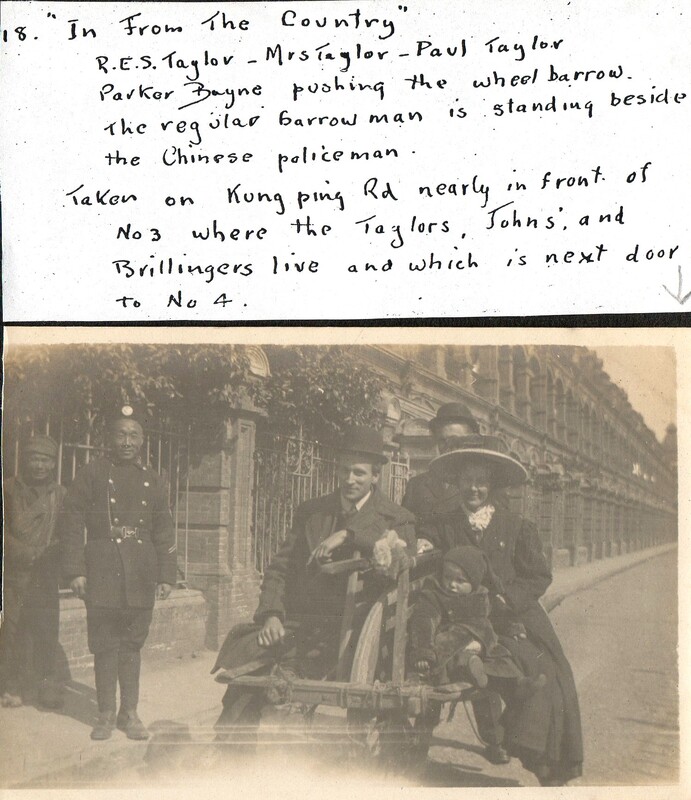 18. "In From The Country"
R.E.S. Taylor - Mrs Taylor - Paul Taylor
Parker Bayne pushing the wheel barrow.
The regular barrow man is standing beside
the Chinese policeman.
Taken on Kung ping Rd nearly in front of
No 3 where the Taylors, Johns', and
Brillingers live and which is next door
to No 4.